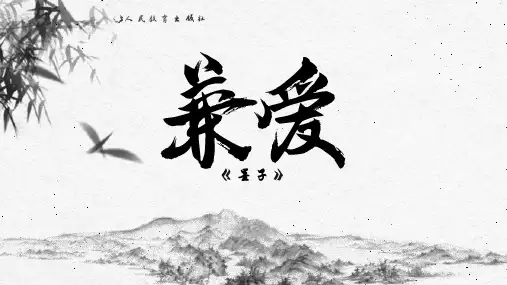 人民教育出版社
兼爱
《墨子》